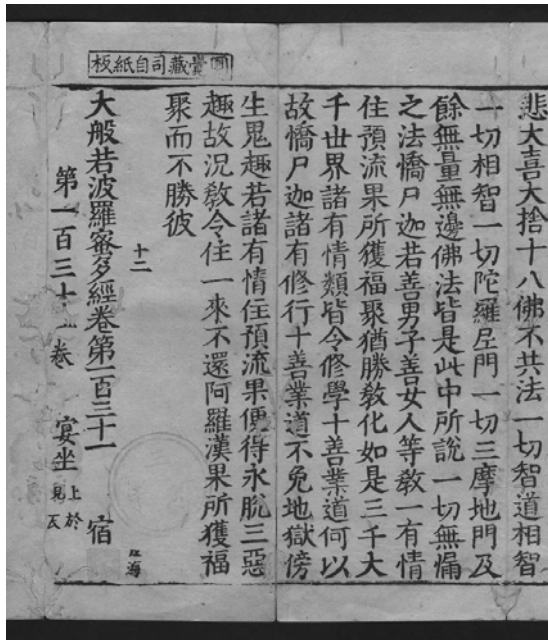 悲大喜大捨十八佛不共法一切智道相智
一切相智一切陀羅尼門一切三摩地門及
餘無量無邊佛法皆是此中所說一切無漏
之法憍尸迦若善男子善女人等教一有情
住預流果所獲福聚猶勝教化如是三千大
千世界諸有情類皆令修學十善業道何以
故憍尸迦諸有修行十善業道不免地獄傍
生鬼趣若諸有情住預流果便得永脫三惡
趣故況教令住一來不還阿羅漢果所獲福
聚而不勝彼
圓覺藏司自紙板
十二
大般若波羅蜜多經卷第一百三十一
宿
第一百三十
卷
宴坐
上於
見
海